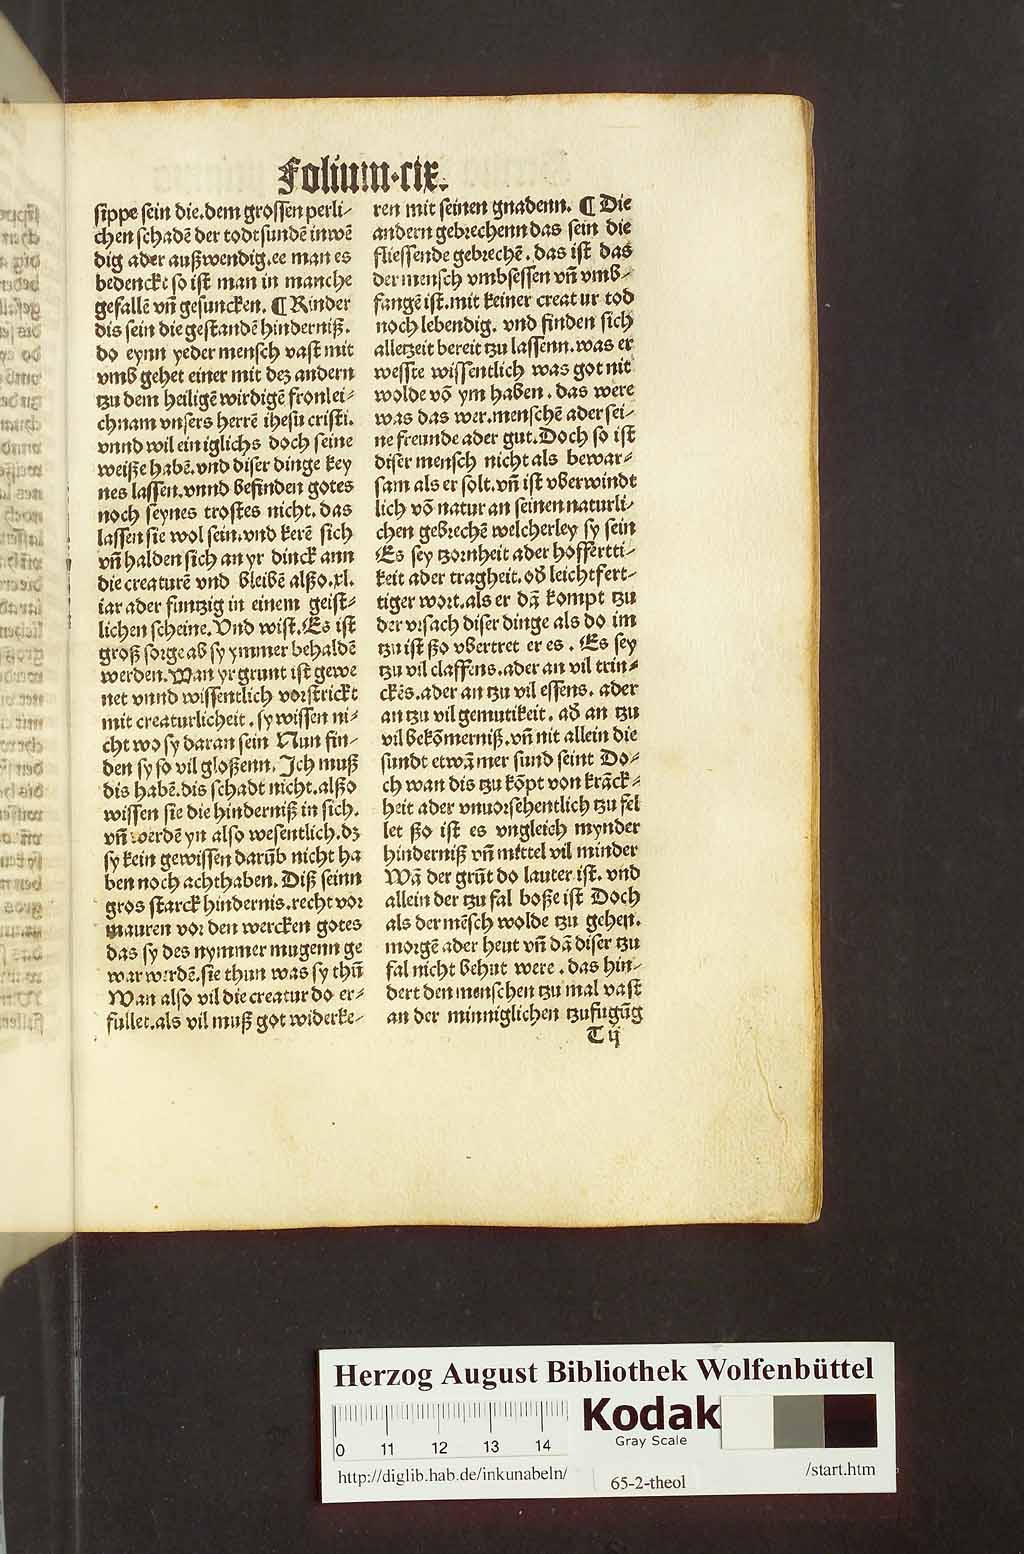 Folium·cix.
sippe sein die.dem grossen perli-
chen schadē der todtsundē inwē
dig ader außwendig.ee man es
bedenckt so ist man in manche
gefallē vn̄ gesuncken. ¶ Kinder
dis sein die gestandē hinderniß.
do eynn yeder mensch vast mit
vmb gehet einer mit dez andern
tzu dem heiligē wirdigē fronlei-
chnam vnsers herrē ihesu cristi.
vnnd wil ein iglichs doch seine
weiße habē.vnd diser dinge key
nes lassen.vnnd befinden gotes
noch seynes trostes nicht. das
lassen sie wol sein.vnd kerē sich
vn̄ halden sich an yr dinck ann
die creaturē vnd bleibē alßo.xl.
iar ader funtzig in einem geist-
lichen scheine.Vnd wist.Es ist
groß sorge ab sy ymmer behaldē
werden.Wan yr grunt ist gewe
net vnnd wissentlich vorstrickt
mit creaturlicheit.sy wissen ni-
cht wo sy daran sein Nun fin-
den sy so vil gloßenn.Ich muß
dis habē.dis schadt nicht.alßo
wissen sie die hinderniß in sich.
vn̄ werdē yn also wesentlich.dz
sy kein gewissen darūb nicht ha
ben noch achthaben. Diß seinn
gros starck hindernis.recht vor
mauren vor den wercken gotes
das sy des nymmer mugenn ge
war werdē.sie thun was sy thū
Wan also vil die creatur do er-
fullet.als vil muß got widerke-
ren mit seinen gnadenn. ¶ Die
andern gebrechenn das sein die
fliessende gebrechē.das ist das
der mensch vmbsessen vn̄ vmb-
fangē ist.mit keiner creatur tod
noch lebendig. vnd finden sich
alletzeit bereit tzu lassenn.was er
wesste wissentlich was got nit
wolde vō ym haben.das were
was das wer.menschē ader sei-
ne freunde ader gut.Doch so ist
diser mensch nicht als bewar-
sam als er solt.vn̄ ist vberwindt
lich vō natur an seinen naturli-
chen gebrechē welcherley sy sein
Es sey tzornheit ader hoffertti-
keit ader tragheit.od̄ leichtfert-
tiger wort.als er dā kompt tzu
der vrsach diser dinge als do im
tzu ist ßo vbertret er es . Es sey
tzu vil claffens.ader an vil trin-
ckēs.ader an tzu vil essens. ader
an tzu vil gemutikeit. ad̄ an tzu
vil bekōmerniß.vn̄ nit allein die
sundt etwā mer sund seint Do-
ch wan dis tzu kōpt von krāck-
heit ader vnuorsehentlich tzu fel
let ßo ist es vngleich mynder
hinderniß vn̄ mittel vil minder
Wā der grūt do lauter ist. vnd
allein der tzu fal boße ist Doch
als der mēsch wolde tzu gehen.
morgē ader heut vn̄ dā diser tzu
fal nicht behut were . das hin-
dert den menschen tzu mal vast
an der minniglichen tzufugūg
T ij
Herzog August Bibliothek Wolfenbüttel
0 11 12 13 14
Kodak
Gray Scale
http://diglib.hab.de/inkunabeln/
65-2-theol
/start.htm